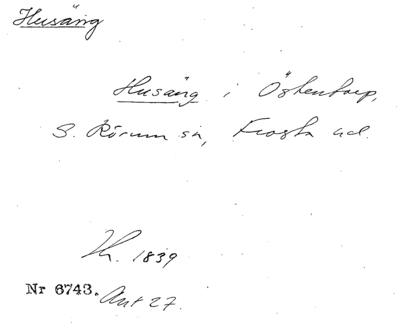 Husäng
Husäng i Östentorp,
S. Rörum sn, Frosta hd.
Kr. 1839
Nr 6743. Ant 27.